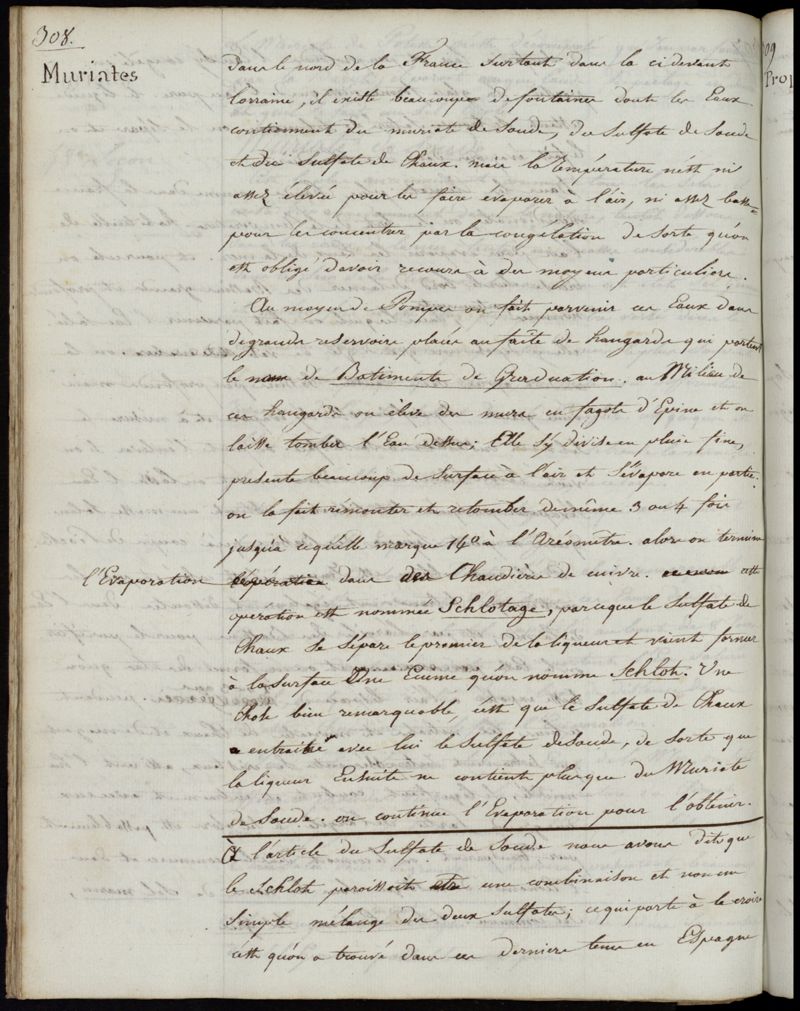 308.
Muriates
dans le nord de la France surtout dans la cidevant
lorraine, il existe beaucoup de fontaines dont les Eaux
contiennent du muriate de Soude, du Sulfate de Soude
et du Sulfate de Chaux. mais la température n'est ni
assez élevée pour les faire évaporer à l'air, ni assez basse
pour les concentrer par la congélation de sorte qu'on
est obligé d'avoir recours à des moyens particuliers.
Au moyen de Pompes on fait parvenir ces Eaux dans
de grands reservoirs placés au faîte de hangards qui portent
le nom de Batiments de Graduation. au Milieu de
ces hangards on élève des murs en fagots d'Epine et on
laisse tomber l'Eau dessus; Elle s'y divise en pluie fine,
présente beaucoup de Surface à l'air et S'évapore en partie.
on la fait remonter et retomber de même 3 ou 4 fois
jusqu'à ce qu'elle marque 14° à l'Aréomêtre. alors on termine
l'Evaporation l'opération dans des Chaudières de cuivre. cette
opération est nommée Schlotage, parceque le Sulfate de
Chaux se sépare le premier de la liqueur et vient former
à la Surface Une Ecume qu'on nomme Schlot. Une
chose bien remarquable, c'est que le Sulfate de Chaux
a entrainé avec lui le Sulfate de Soude, de sorte que
la liqueur Ensuite ne contient plus que du Muriate
de Soude. on continue l'Evaporation pour l'obtenir.
A l'article du Sulfate de Soude nous avons dit que
le Schlot paroissoit être une combinaison et non un
Simple mélange des deux Sulfates; ce qui porte à le croire
c'est qu'on a trouvé dans ces derniers tems en Espagne
09
Prop